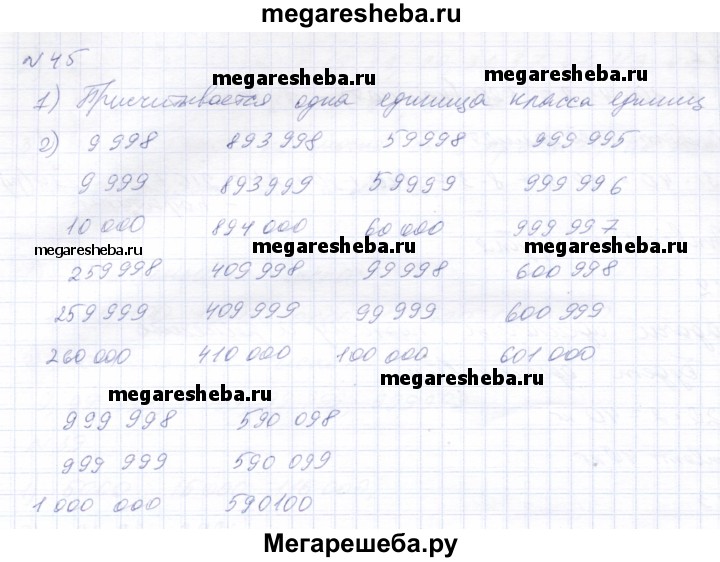 megaresheba.ru
N 45
megaresheba.ru megaresheba.ru
1) Присчитывается одна единица класса единиц
2) 9 998 893 998 59998 999 995
9 999 893999 59999 999 996
10 000 894 000 60 000 999 997
megaresheba.ru megaresheba.ru megaresheba.ru
259998 409 998 99998 600 998
259 999 409 999 99 999 600 999
260 000 410 000 100 000 601 000
megaresheba.ru megaresheba.ru
999 998 590 098
999 999 590 099
1 000 000 590100
Мегарешеба.ру